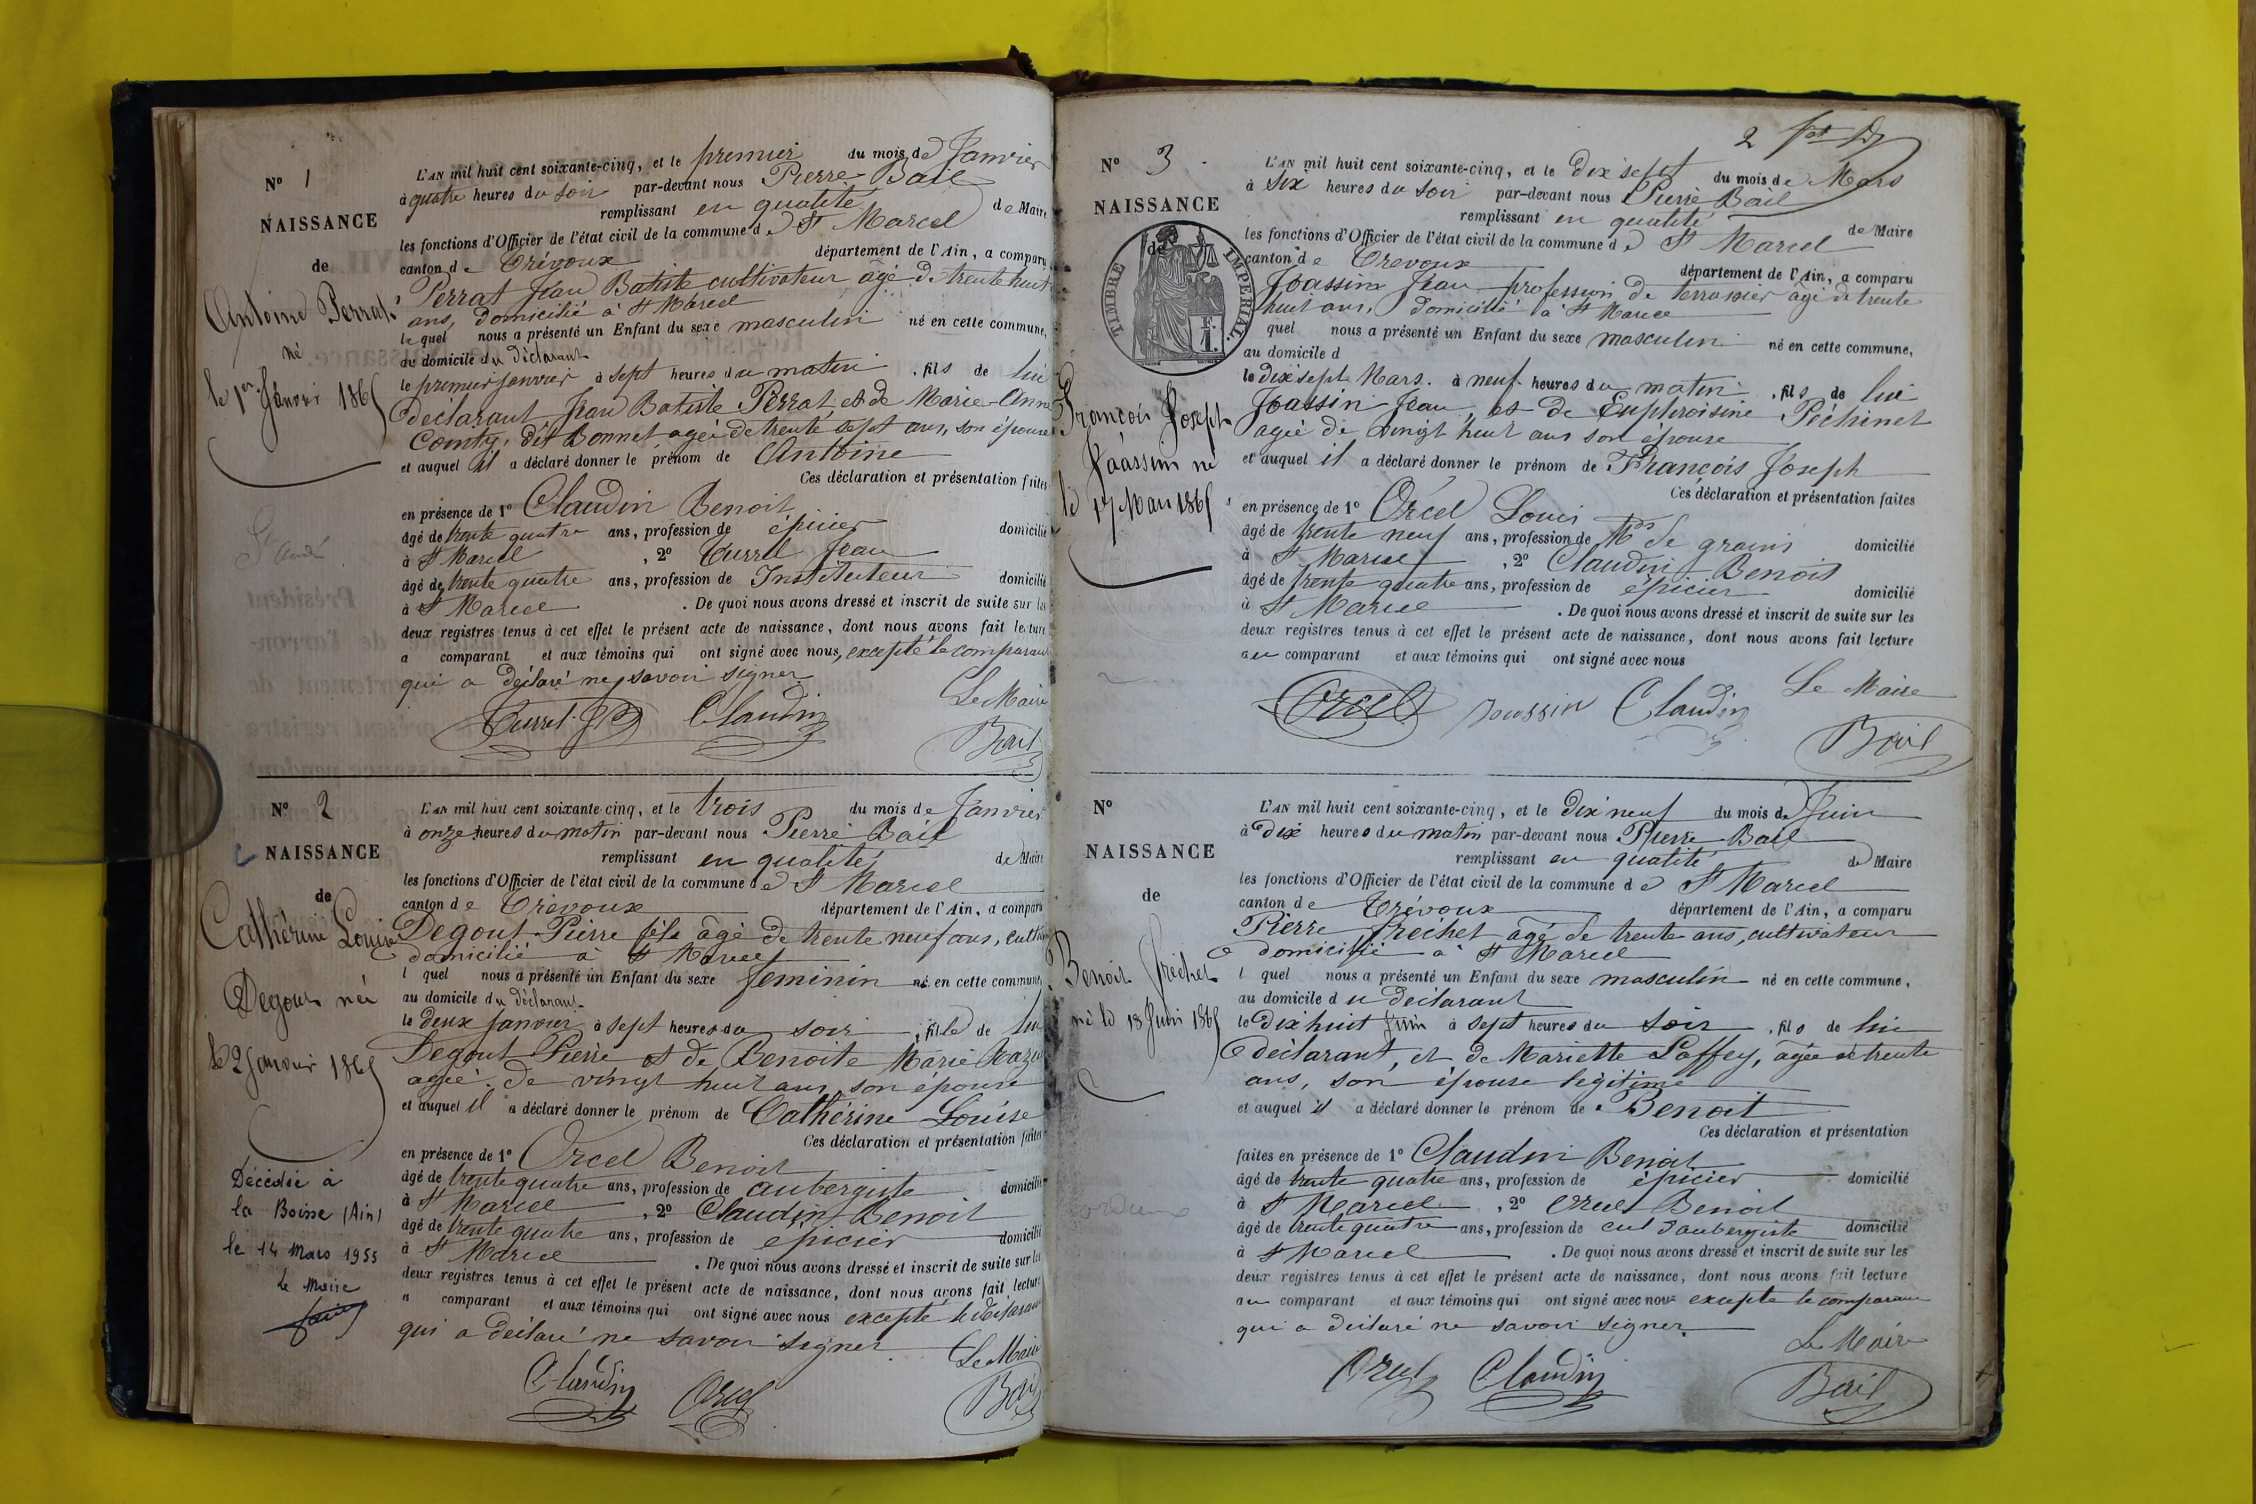 N° 1
NAISSANCE
de
Antoine Perrat
né
le 1er Janvi 1865
L'AN mil huit cent soixante-cinq, et le premier du mois de Janvier
à quatre heures du soir par-devant nous Pierre Bail
remplissant en qualité de Maire
les fonctions d'Officier de l'état civil de la commune de St Marcel
canton de Trévoux département de l'Ain, a comparu
Perrat Jean Batiste cultivateur âgé de trente huit
ans, domicilié à St Marcel
lequel nous a présenté un Enfant du sexe masculin né en cette commune,
au domicile du déclarant
le premier janvier à sept heures du matin, fils de lui
déclarant Jean Batiste Perrat et de Marie-Anne
Comtg, dit Bonnet agée de trente sept ans, son épouse
et auquel il a déclaré donner le prénom de Antoine
Ces déclaration et présentation faites
en présence de 1° Claudin Benoit
âgé de trente quatre ans, profession de épicier domicilié
à St Marcel, 2° Turrel Jean
âgé de trente quatre ans, profession de Instituteur domicilié
à St Marcel. De quoi nous avons dressé et inscrit de suite sur les
deux registres tenus à cet effet le présent acte de naissance, dont nous avons fait lecture
a comparant et aux témoins qui ont signé avec nous, excepté le comparant
qui a déclaré ne savoir signer
Le Maire
Turrel Claudin
Bail
N° 2
NAISSANCE
de
Catherine Louise
Degout née
le 2 Janvier 1865
Décédée à
la Boisse (Ain)
le 14 Mars 1955
Le Maire
L'AN mil huit cent soixante-cinq, et le trois du mois de Janvier
à onze heures du matin par-devant nous Pierre Bail
remplissant en qualité de Maire
les fonctions d'Officier de l'état civil de la commune de St Marcel
canton de Trevoux département de l'Ain, a comparu
Degout Pierre agé de trente neuf ans,
domicilié à St Marcel
l quel nous a présenté un Enfant du sexe feminin né en cette commune,
au domicile du déclarant
le deux janvier à sept heures du soir, fille de lui
Degout Pierre et de Benoite Marie
agée de vingt huit ans son épouse
et auquel il a déclaré donner le prénom de Cathérine Louise
Ces déclaration et présentation faites
en présence de 1° Orcel Benoit
âgé de trente quatre ans, profession de aubergiste domicilié
à St Marcel, 2° Claudin Benoit
âgé de trente quatre ans, profession de epicier domicilié
à St Marcel. De quoi nous avons dressé et inscrit de suite sur les
deux registres tenus à cet effet le présent acte de naissance, dont nous avons fait lecture
a comparant et aux témoins qui ont signé avec nous excepté le déclarant
qui a déclaré ne savoir signer
Le Maire
Claudin Orcel
Bail
2
N° 3
NAISSANCE
de
TIMBRE IMPERIAL.
François Joseph
Joassin né
le 17 Mars 1865
L'AN mil huit cent soixante-cinq, et le dix sept du mois de Mars
à Six heures du soir par-devant nous Pierre Bail
remplissant en qualité de Maire
les fonctions d'Officier de l'état civil de la commune de St Marcel
canton de Trevoux département de l'Ain, a comparu
Joassin Jean profession de terrassier âgé de trente
huit ans, domicilié à St Marcel
quel nous a présenté un Enfant du sexe masculin né en cette commune,
au domicile d
le dix sept Mars. à neuf heures du matin, fils de lui
Joassin Jean, et de Euphroisine Péchinet
agée de vingt huit ans son épouse
et auquel il a déclaré donner le prénom de François Joseph
Ces déclaration et présentation faites
en présence de 1° Orcel Louis
âgé de trente neuf ans, profession de Md de grains domicilié
à St Marcel, 2° Claudin Benoit
âgé de trente quatre ans, profession de épicier domicilié
à St Marcel. De quoi nous avons dressé et inscrit de suite sur les
deux registres tenus à cet effet le présent acte de naissance, dont nous avons fait lecture
au comparant et aux témoins qui ont signé avec nous
Le Maire
Orcel Joassin Claudin
Bail
N°
NAISSANCE
de
Benoit Fréchet
né le 18 Juin 1865
L'AN mil huit cent soixante-cinq, et le dix neuf du mois de Juin
à dix heures du matin par-devant nous Pierre Bail
remplissant en qualité de Maire
les fonctions d'Officier de l'état civil de la commune de St Marcel
canton de Trévoux département de l'Ain, a comparu
Pierre Fréchet agé de trente ans, cultivateur
domicilié à St Marcel
l quel nous a présenté un Enfant du sexe masculin né en cette commune,
au domicile du déclarant
le dix huit Juin à sept heures du soir, fils de lui
déclarant, et de Mariette Laffey, agée de trente
ans, son épouse légitime
et auquel il a déclaré donner le prénom de Benoit
Ces déclaration et présentation
faites en présence de 1° Claudin Benoit
âgé de trente quatre ans, profession de épicier domicilié
à St Marcel, 2° Orcel Benoit
âgé de trente quatre ans, profession de cul d'aubergiste domicilié
à St Marcel. De quoi nous avons dressé et inscrit de suite sur les
deux registres tenus à cet effet le présent acte de naissance, dont nous avons fait lecture
au comparant et aux témoins qui ont signé avec nous excepte le comparant
qui a déclaré ne savoir signer.
Le Maire
Orcel Claudin
Bail